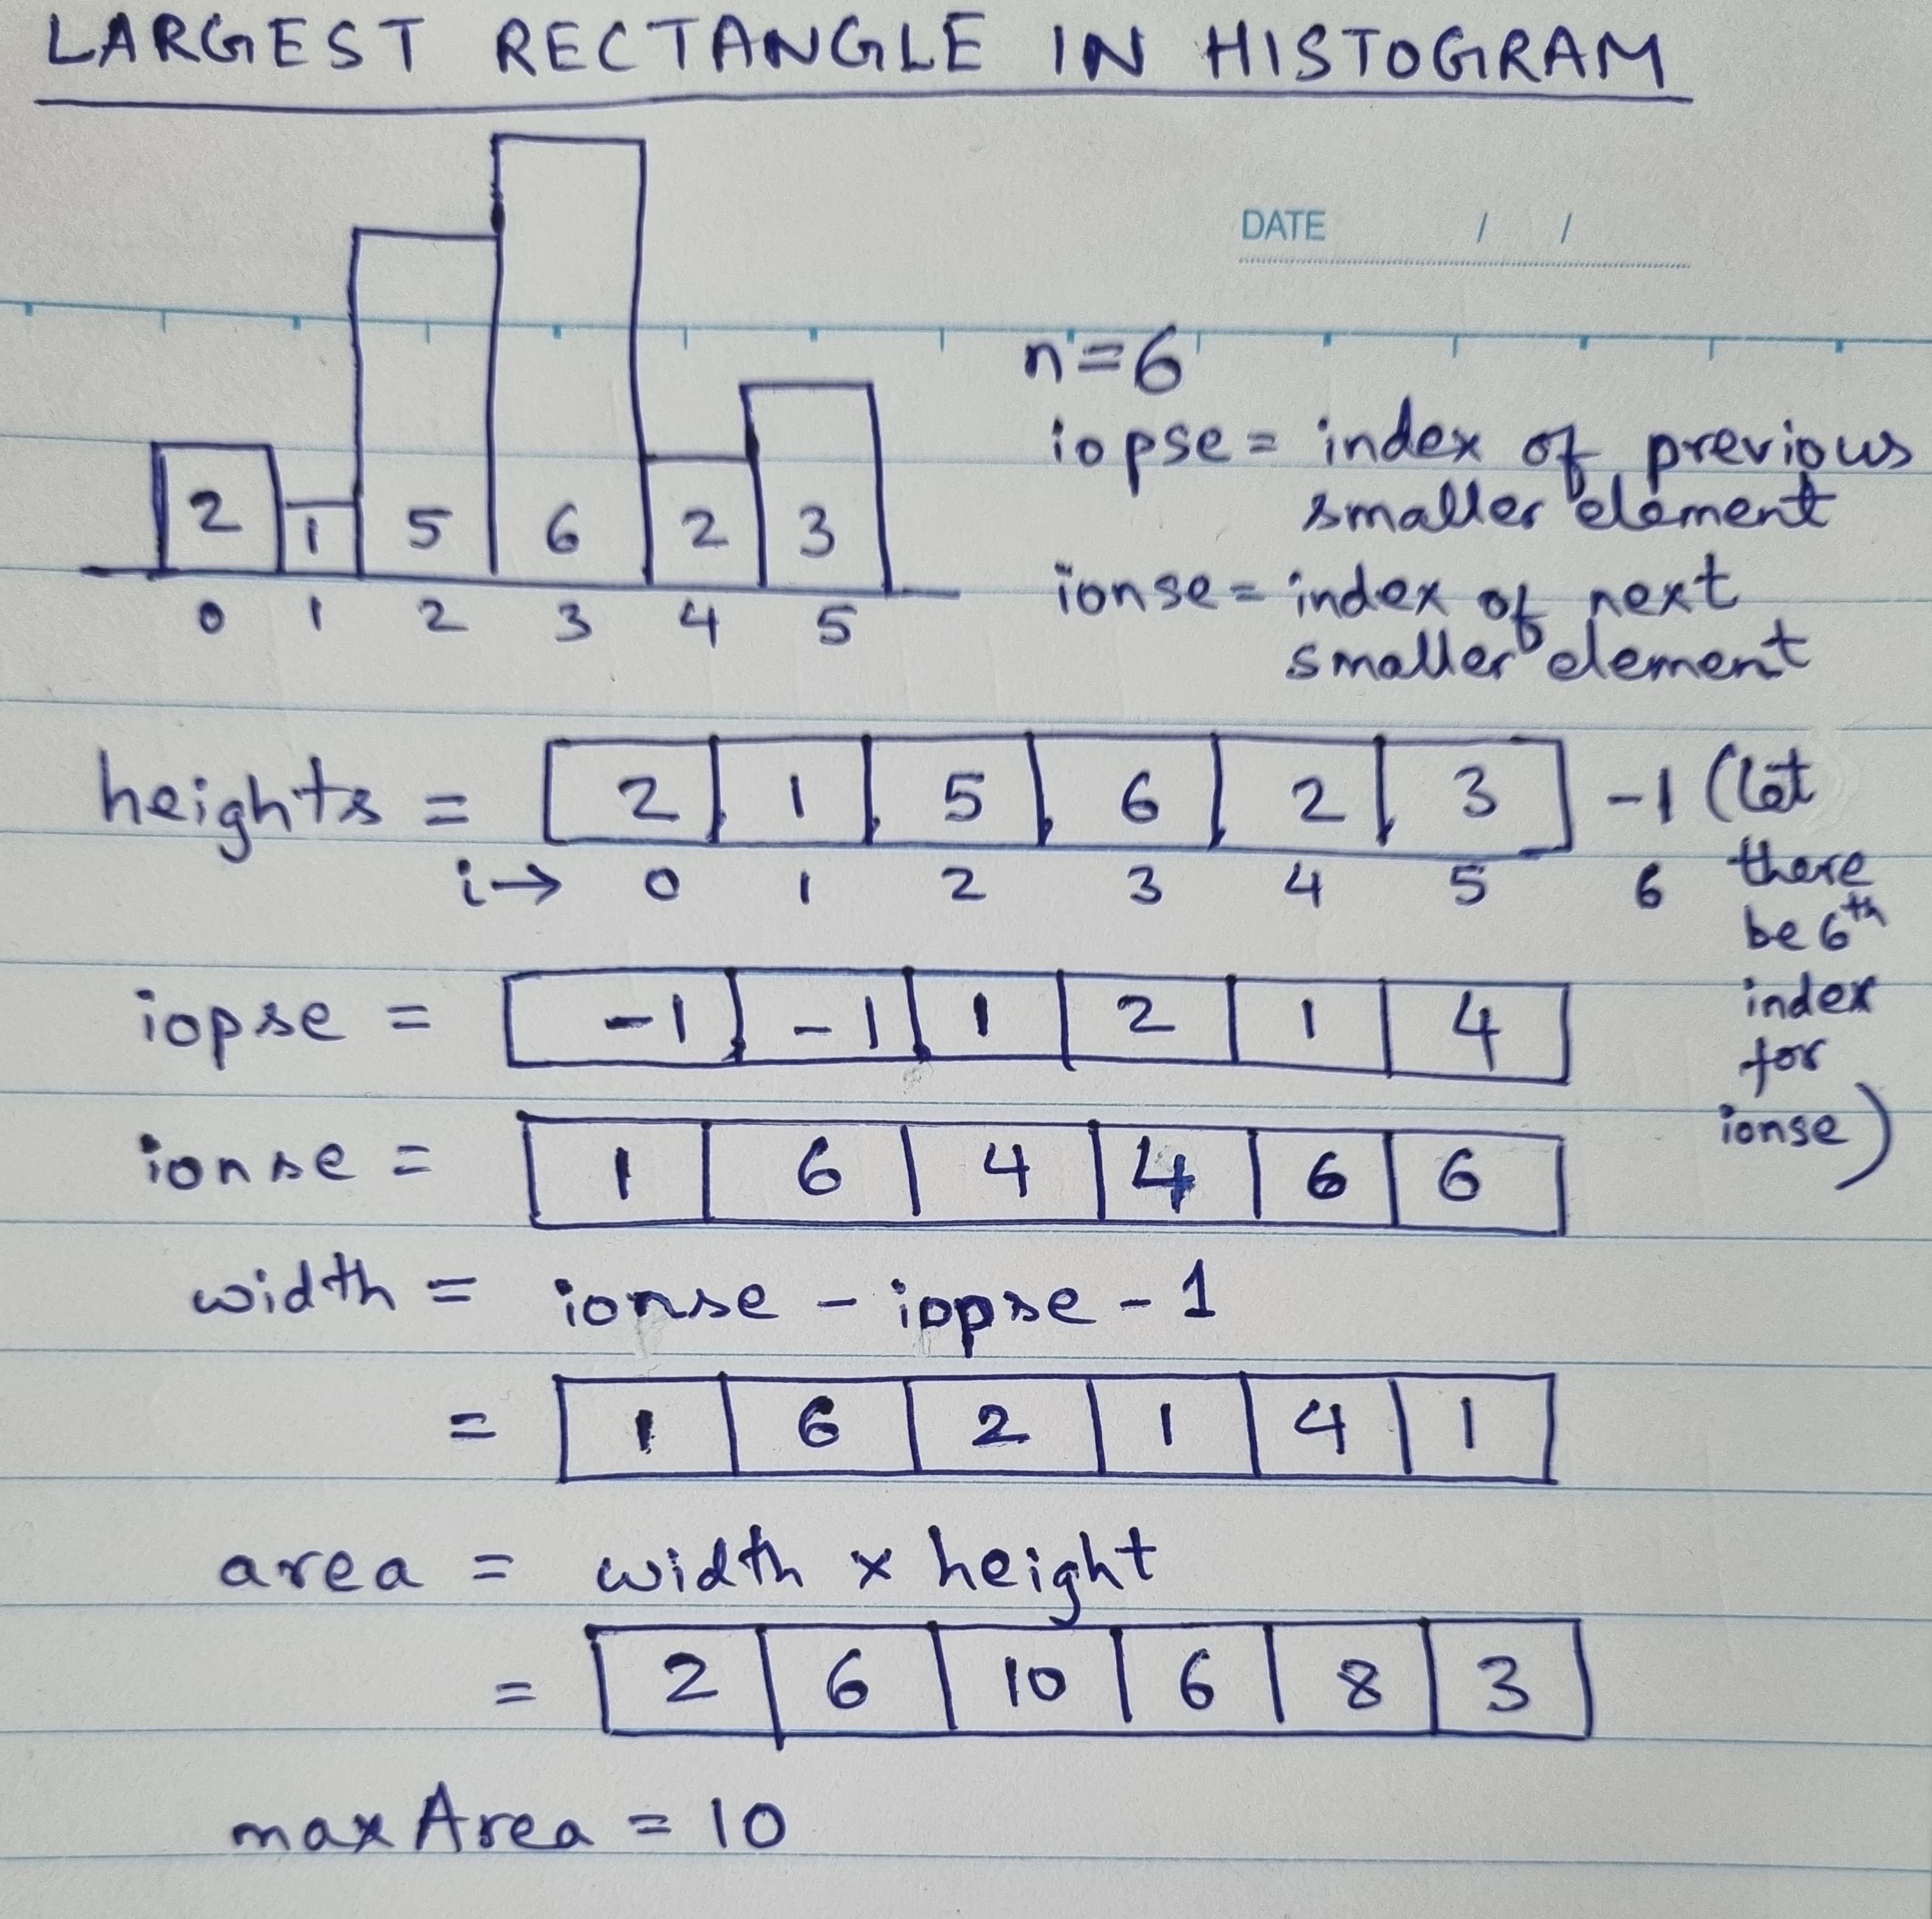 LARGEST RECTANGLE IN HISTOGRAM
DATE / /
2 1 5 6 2 3
0 1 2 3 4 5
n=6
iopse = index of previous
smaller element
ionse = index of next
smaller element
heights = 2 1 5 6 2 3 -1 (let
i→ 0 1 2 3 4 5 6 there
be 6th
index
for
ionse)
iopse = -1 -1 1 2 1 4
ionse = 1 6 4 4 6 6
width = ionse - iopse - 1
= 1 6 2 1 4 1
area = width x height
= 2 6 10 6 8 3
maxArea = 10